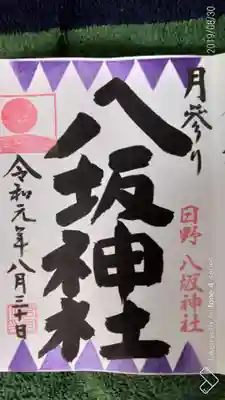 2019/08/30
月参り
八坂神社
日野 八坂神社
令和元年八月三十日